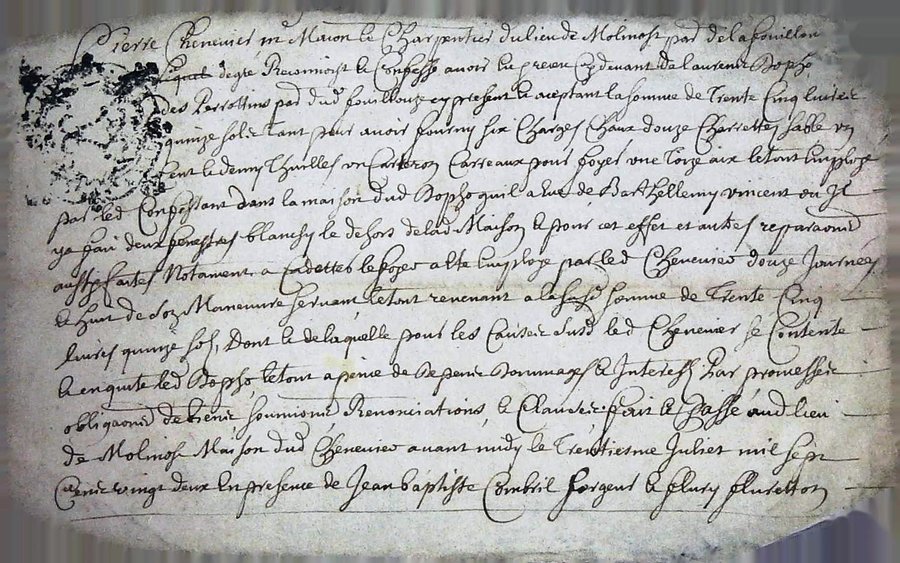 Pierre Chenevier m.e Masson & Charpentier du lieu de Molinost par.d de la fouillou
lequel de gre Reconnoist & Confesse avoir eu, preceu Cydevant de laurent Dopho
des Perrottins par.d dud fouillouze cy present & aceptant la somme de Trente Cinq livres
quinze solz tant pour avoir fourny six Charges Chaux douze Charrettes sable un
Cent & demy Thuelles un Carteron Carreaux pour foyer une Toize aix le tout employe
par led Confessant dans la maison dud Dopho quil a heu de Barthellemy vincent ou Il
ya fait deux fenestres blanchy le dehors de lad Maison & pour cet effet et autres reparaons
aussy faites Notament a Cadettes le foyer a este employe par led Chenevier douze Journées
& huit de son Maneuvre servant le tout revenant a la susd somme de Trente Cinq
livres quinze solz, Dont & de laquelle pour les Causes susd led Chenevier se Contente
& en quitte led Dopho le tout a peine de Depens Dommages & Interess Par promesses
obligaons de biens soumions Renonciations & Clauses fait & Passé aud lieu
de Molinost Maison dud Chenevier avant midy le Trentiesme Juliet mil sept
Cents vingt deux En presence de Jean baptiste Combril sergent & flury fluretton